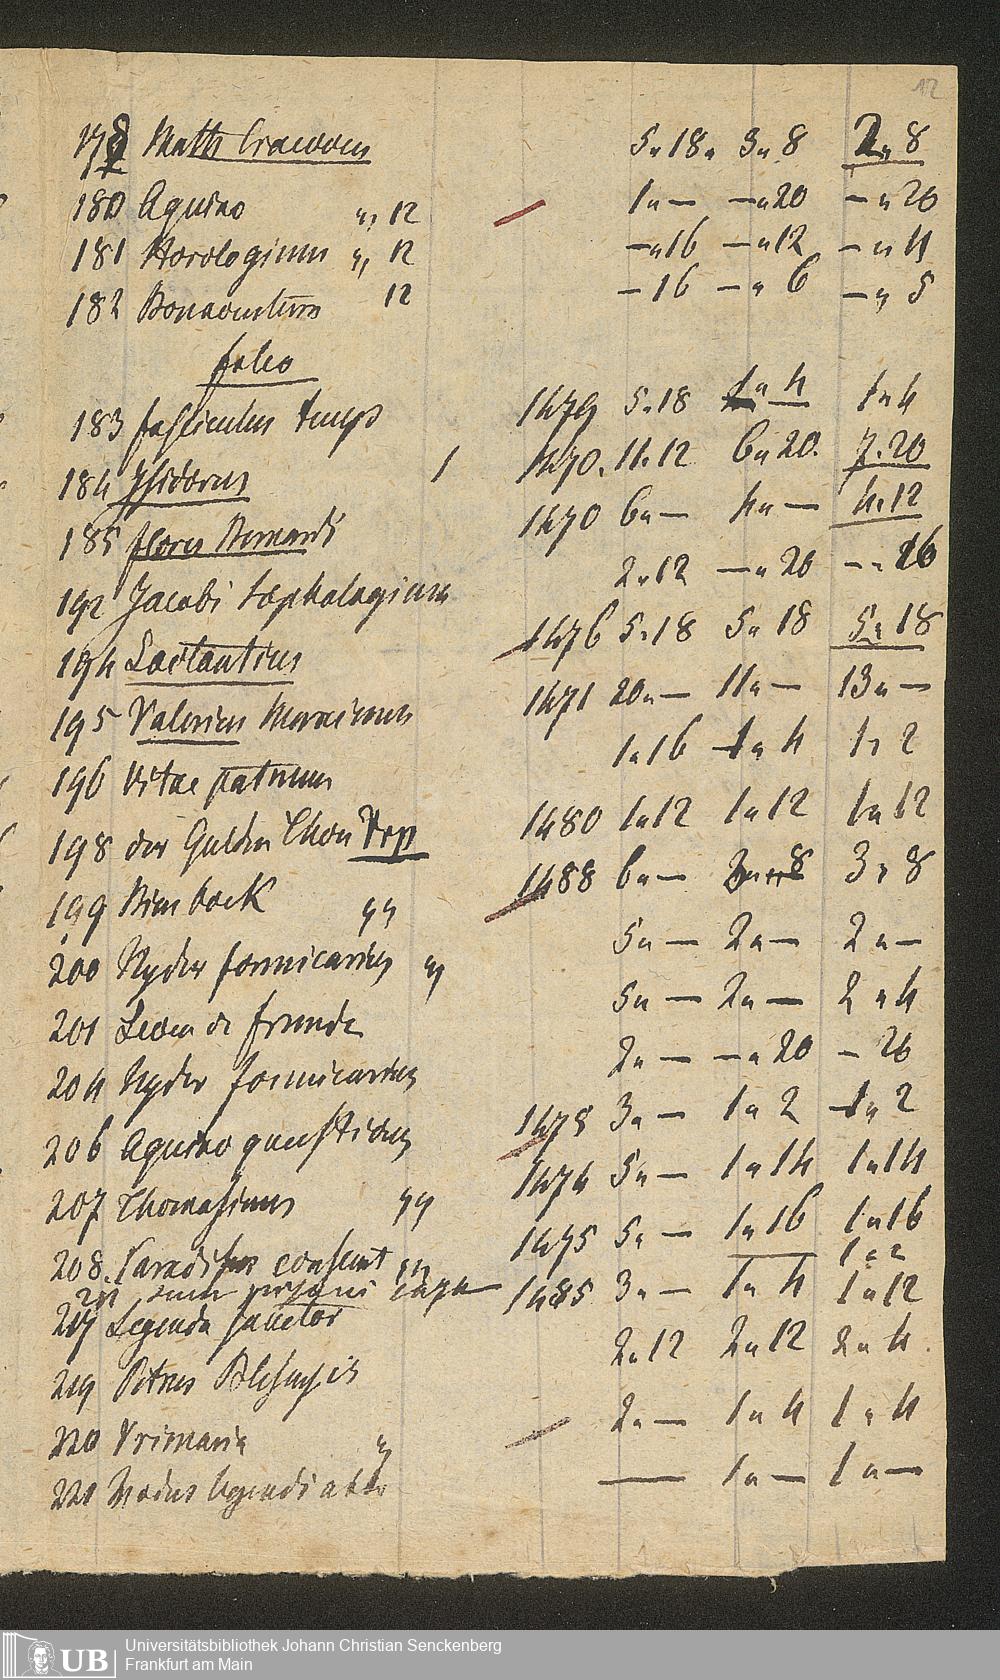 12
178 Matth Cracoven 5 " 18 " 3 " 8 2 " 8
180 Aquino " 12 1 " — — " 20 — " 20
181 Horologium " 12 — " 16 — " 12 — " 4
182 Bonaventura 12 — 16 — " 6 — " 5
folio
183 fasciculus temps 1479 5 . 18 1 " 4 1 " 4
184 Isidorus 1 1470 . 11 . 12 6 " 20 . 7 . 20
185 flores Bernardi 1470 6 " — 4 " — 4 . 12
192 Jacobi sophologium 2 " 12 — " 20 — " 16
194 Lactantius 1476 5 . 18 5 " 18 5 . 18
195 Valerius Maximus 1471 20 " — 11 " — 13 " —
196 Vitae patrum 1 " 16 1 " 4 1 " 2
198 der Gulden Thon Trp 1480 1 " 12 1 " 12 1 " 12
199 Birnbock " 1488 6 " — 2 " 8 3 " 8
200 Nyder formicarius " 5 " — 2 " — 2 " —
201 Leben de 5 " — 2 " — 2 " 4
204 Nyder formicarius 2 " — — " 20 — 20
206 Aquino questiones 1478 3 " — 1 " 2 1 " 2
207 Thomasinus " 1474 5 " — 1 " 14 1 " 14
208 . Paradisus " 1475 5 " — 1 " 16 1 " 16
1 " 2
217 Legenda sanctor 1485 3 " — 1 " 4 1 " 12
219 Petrus Blesensis 2 " 12 2 " 12 2 " 4 .
220 Primaria " 2 " — 1 " 4 1 " 4
221 Modus legendi abbr — 1 " — 1 " —
UB Universitätsbibliothek Johann Christian Senckenberg
Frankfurt am Main